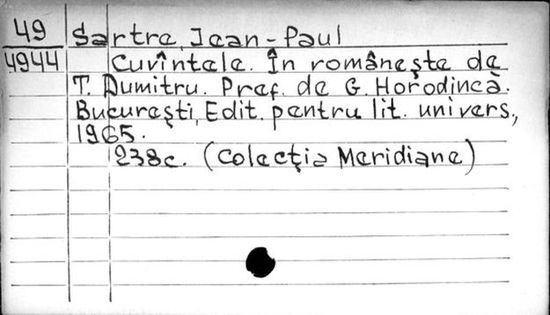 49 Sartre, Jean-Paul
4944 Cuvîntele. În românește de
T. Dumitru. Pref. de G. Horodincă.
București, Edit. pentru lit. univers.,
1965.
238c. (Colecția Meridiane)